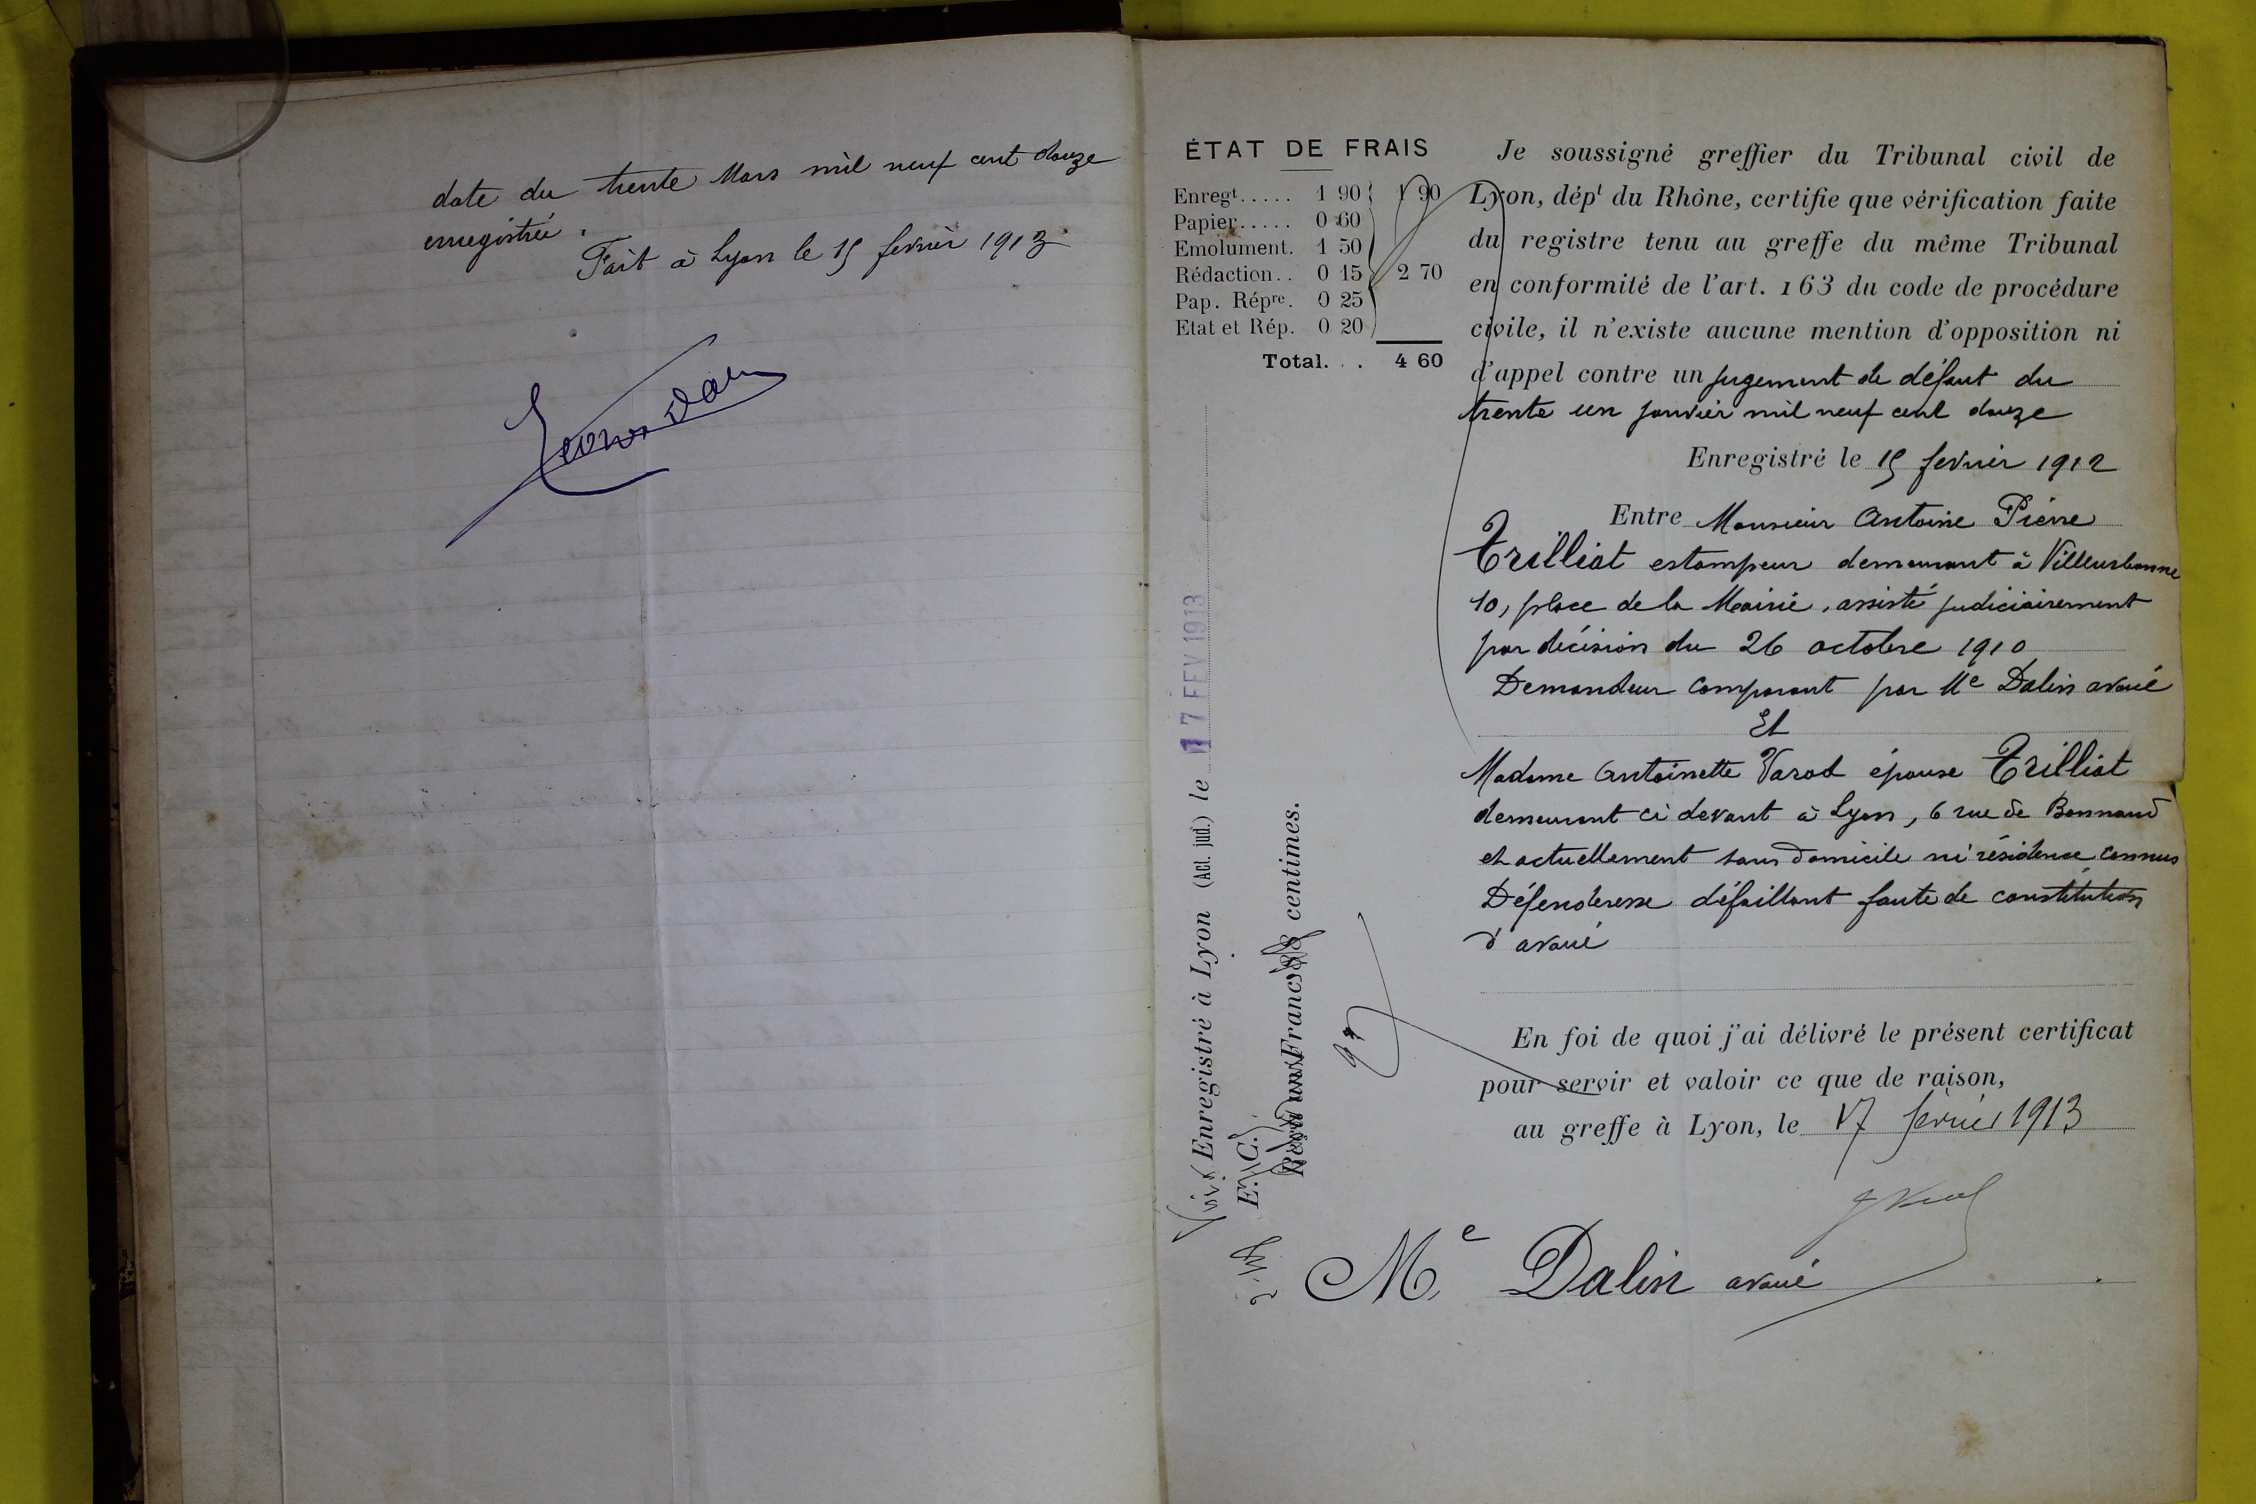 date du trente Mars mil neuf cent douze
enregistrée.
Fait à Lyon le 15 fevrier 1913
ÉTAT DE FRAIS
Enregt..... 1 90 1 90
Papier..... 0 60
Emolument. 1 50
Rédaction.. 0 15 2 70
Pap. Répre. 0 25
Etat et Rép. 0 20
Total... 4 60
Enregistré à Lyon (Act. jud.) le 17 FEV 1913
Francs centimes.
Je soussigné greffier du Tribunal civil de
Lyon, dépt du Rhône, certifie que vérification faite
du registre tenu au greffe du même Tribunal
en conformité de l'art. 163 du code de procédure
civile, il n'existe aucune mention d'opposition ni
d'appel contre un jugement de défaut du
trente un janvier mil neuf cent douze
Enregistré le 15 fevrier 1912
Entre Monsieur Antoine Pierre
Trilliat estampeur demeurant à Villeurbanne
10, place de la Mairie, assisté judiciairement
par décision du 26 octobre 1910
Demandeur comparant par Me Dalin avoué
Et
Madame Antoinette Varot épouse Trilliat
demeurant ci devant à Lyon, 6 rue de Bonnand
et actuellement sans domicile ni résidence connus
Défenderesse défaillant faute de constitution
d'avoué
En foi de quoi j'ai délivré le présent certificat
pour servir et valoir ce que de raison,
au greffe à Lyon, le 17 février 1913
Me Dalin avoué